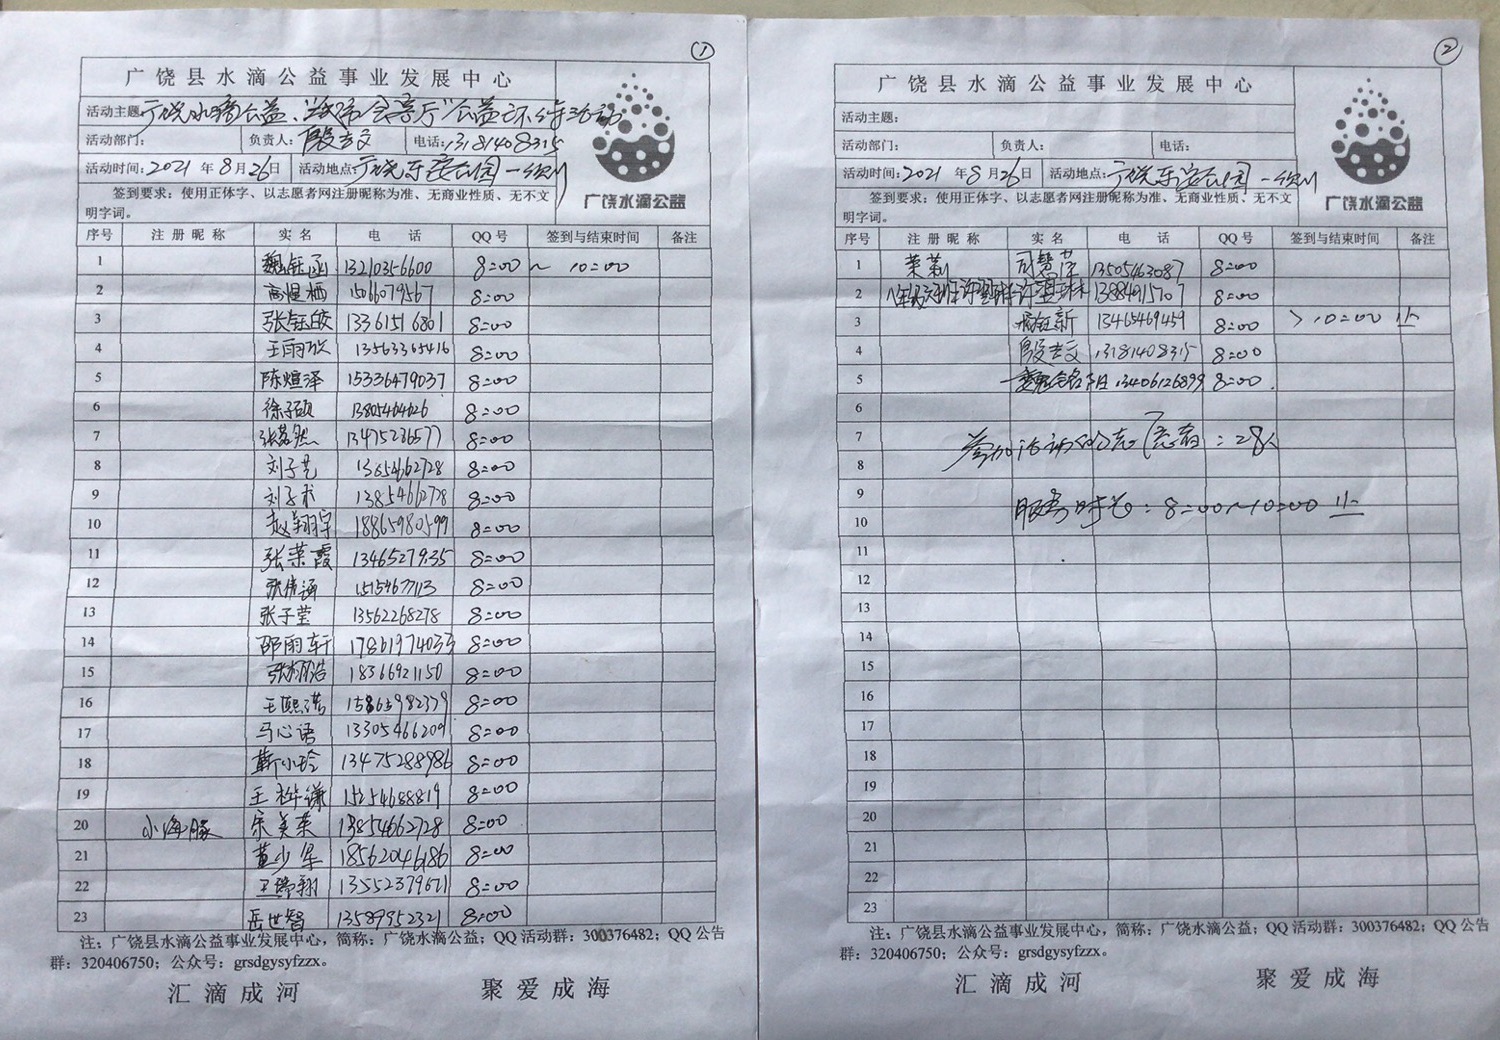 ①
广饶县水滴公益事业发展中心
活动主题:广饶水滴公益、 公益环保活动
活动部门: 负责人: 殷孝文 电话:13181408315
活动时间:2021 年 8 月 26 日 活动地点:广饶乐安公园
签到要求：使用正体字、以志愿者网注册昵称为准、无商业性质、无不文
明字词。
广饶水滴公益
序号 注册昵称 实名 电话 QQ号 签到与结束时间 备注
1 魏钰函 13210356600 8:00 ~ 10:00
2 高煜栖 15066079567 8:00
3 张钰皎 13361516801 8:00
4 王雨欣 13563365416 8:00
5 陈煊泽 15336479037 8:00
6 徐子硕 8:00
7 张茗然 13475236577 8:00
8 刘子艺 13854662728 8:00
9 刘子 13854662728 8:00
10 赵翔宇 18865980599 8:00
11 张荣霞 1346527935 8:00
12 张倩涵 8:00
13 张子莹 13562268278 8:00
14 邵雨轩 17861974033 8:00
15 18366921150 8:00
16 王熙诺 15865982379 8:00
17 马心语 13305466209 8:00
18 靳小玲 13475288986 8:00
19 王 谦 15254688819 8:00
20 小海豚 宋美荣 13854662728 8:00
21 董少华 18562046186 8:00
22 翔 13552379671 8:00
23 岳世智 13589952321 8:00
注：广饶县水滴公益事业发展中心，简称：广饶水滴公益；QQ 活动群：300376482；QQ 公告
群：320406750；公众号：grsdgysyfzzx。
汇滴成河 聚爱成海
②
广饶县水滴公益事业发展中心
活动主题：
活动部门： 负责人： 电话：
活动时间：2021 年 8 月 26 日 活动地点：广饶乐安公园
签到要求：使用正体字、以志愿者网注册昵称为准、无商业性质、无不文
明字词。
广饶水滴公益
序号 注册昵称 实名 电话 QQ号 签到与结束时间 备注
1 茉莉 司慧萍 13505463087 8:00
2 许 琳 13884915707 8:00
3 钰新 13465469459 8:00 > 10:00 止
4 殷孝文 13181408315 8:00
5 13406126899 8:00
6
7 参加活动的志愿者：28人
8
9
10 服务时长：8:00~10:00 止
11
12
13
14
15
16
17
18
19
20
21
22
23
注：广饶县水滴公益事业发展中心，简称：广饶水滴公益；QQ 活动群：300376482；QQ 公告
群：320406750；公众号：grsdgysyfzzx。
汇滴成河 聚爱成海